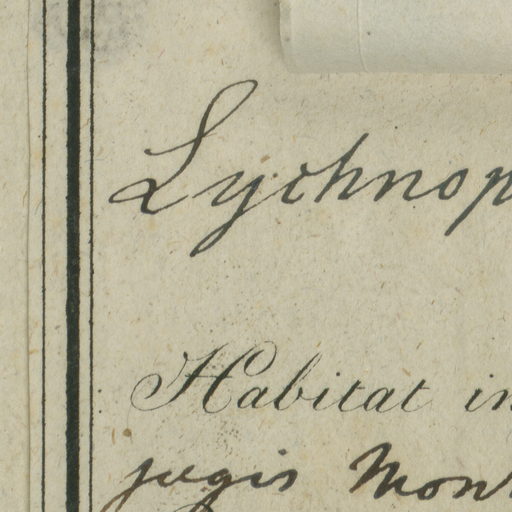 Lychnop
Habitat in
jugis Mont